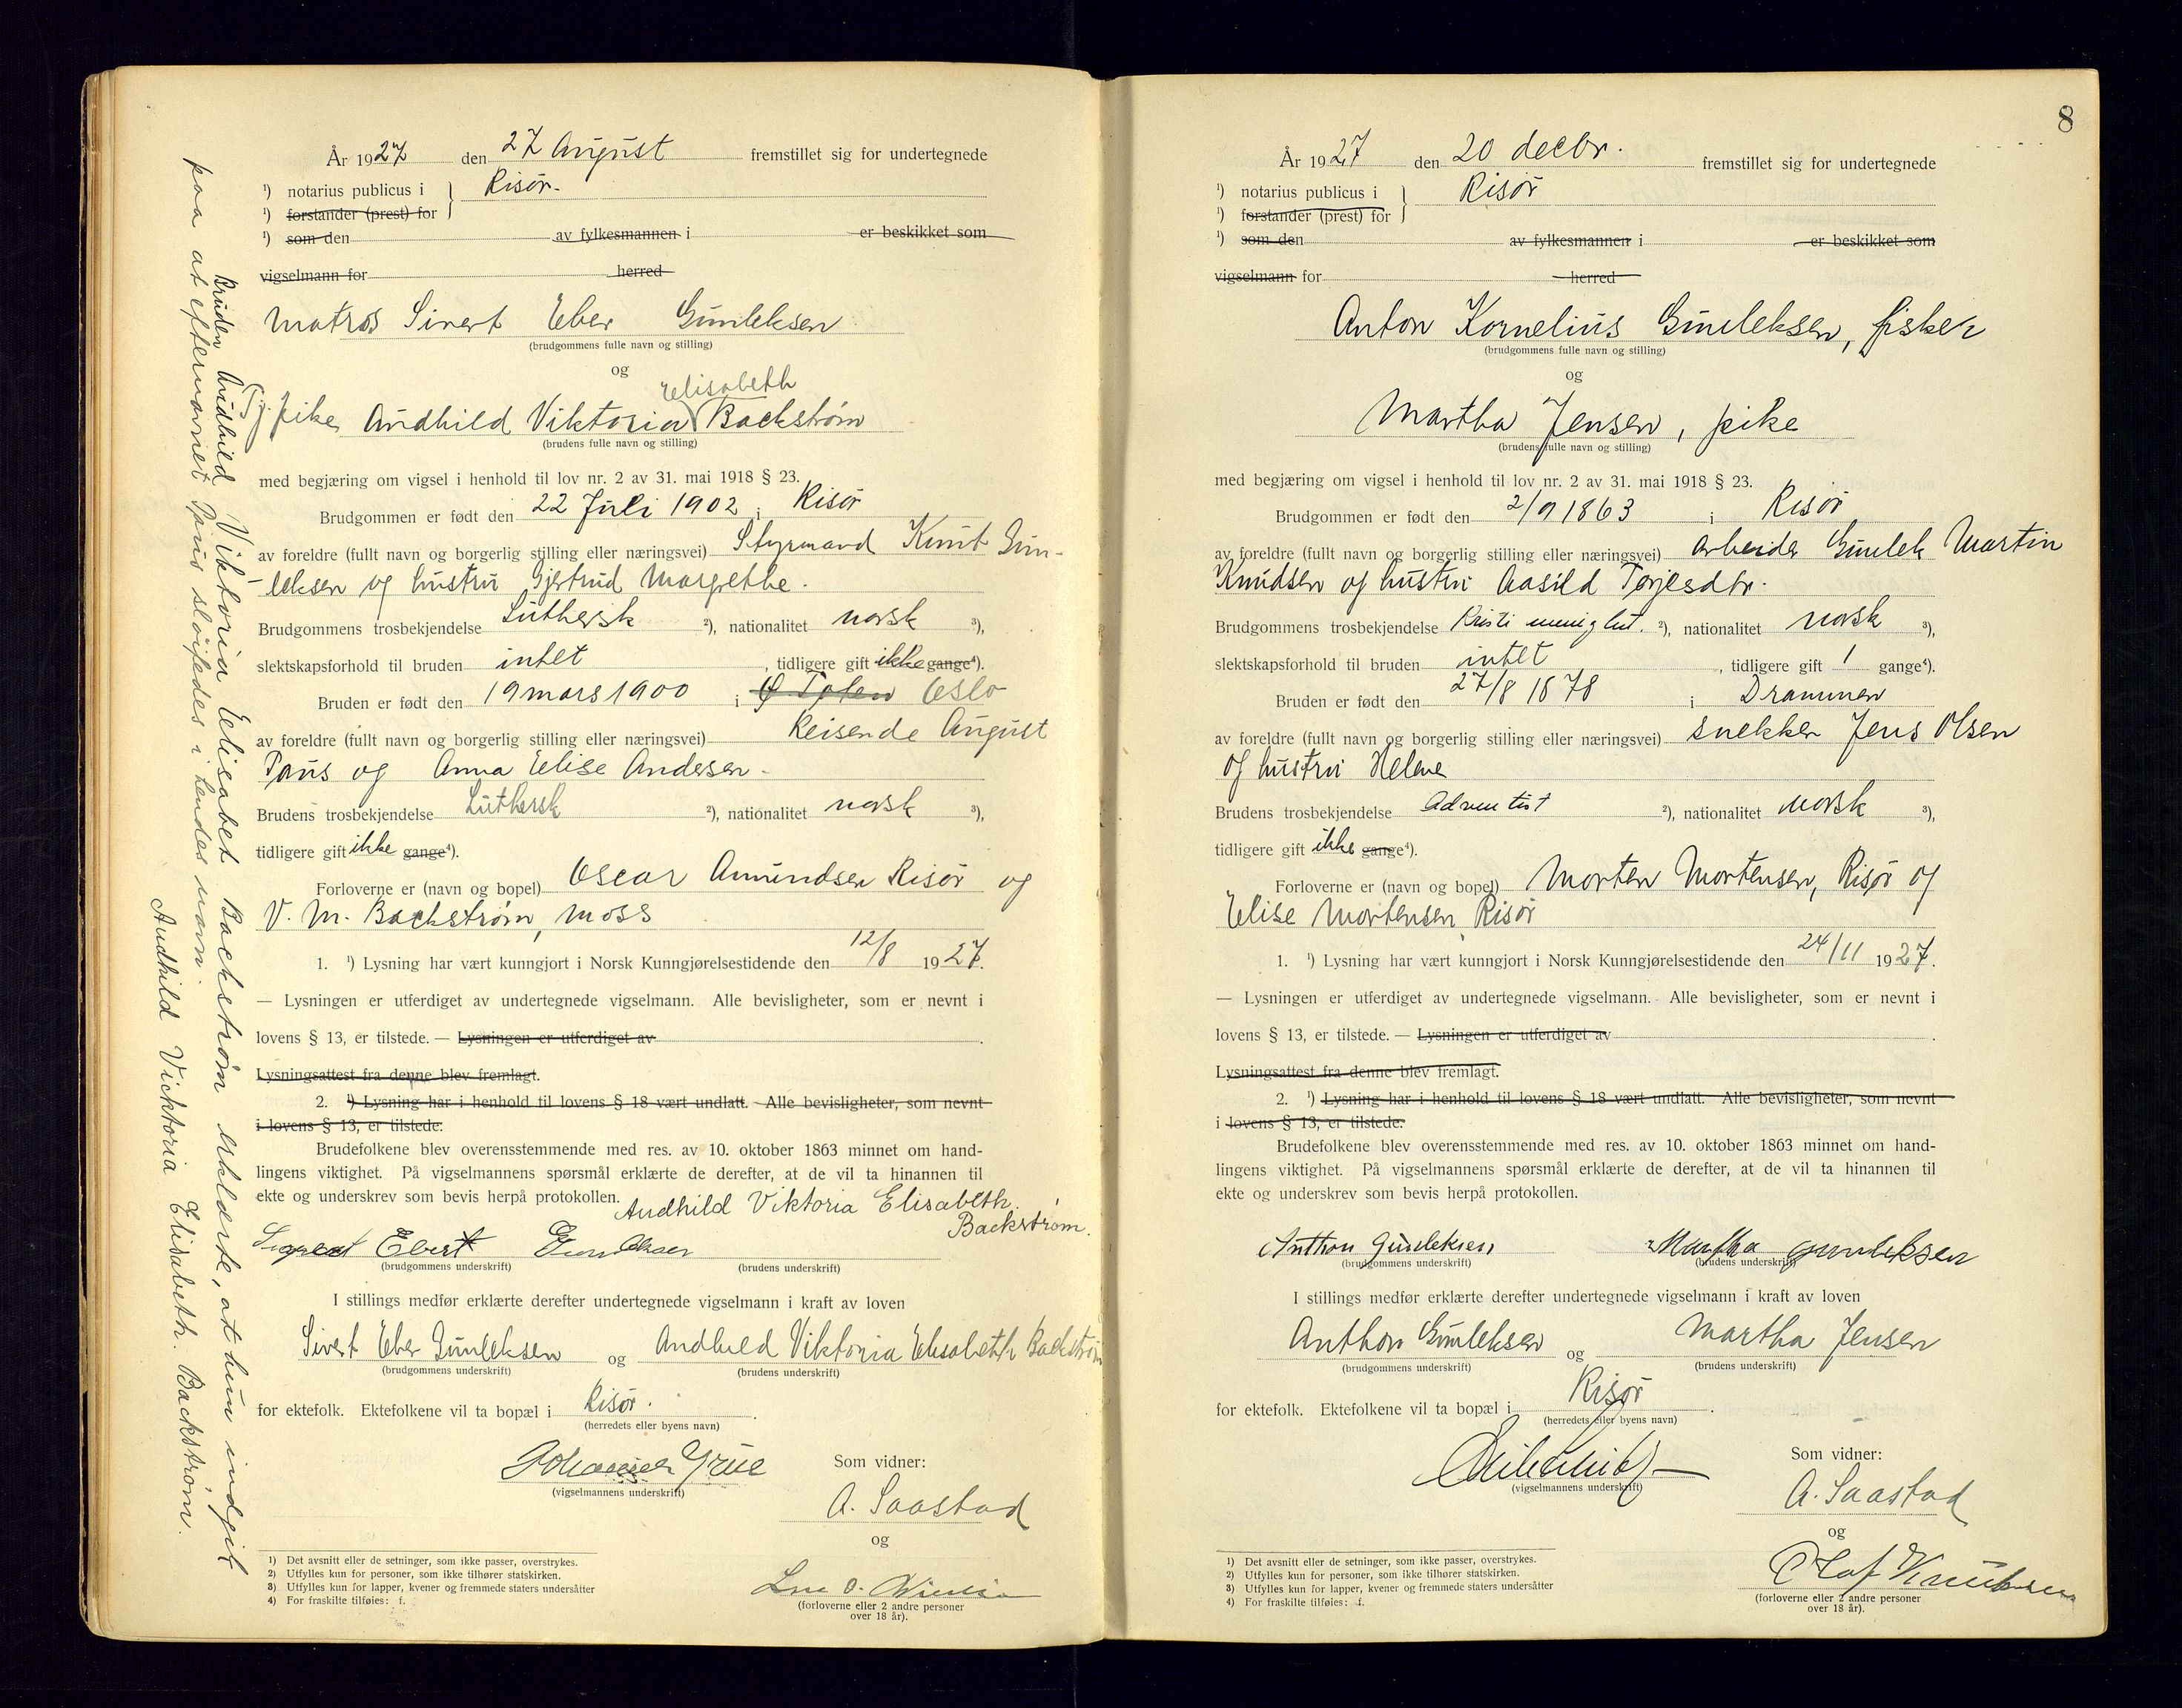 År 1927 den 27 August fremstillet sig for undertegnede
¹) notarius publicus i } Risør.
¹) forstander (prest) for
¹) som den av fylkesmannen i er beskikket som
vigselmann for herred
Matros Sivert Eber Gunleksen
(brudgommens fulle navn og stilling)
og
Elisabeth
Tj. pike Audhild Viktoria Backstrøm
(brudens fulle navn og stilling)
med begjæring om vigsel i henhold til lov nr. 2 av 31. mai 1918 § 23.
Brudgommen er født den 22 Juli 1902 i Risør
av foreldre (fullt navn og borgerlig stilling eller næringsvei) Styrmand Knut Gun-
-leksen og hustru Gjertrud Margrethe.
Brudgommens trosbekjendelse Luthersk ²), nationalitet norsk ³),
slektskapsforhold til bruden intet , tidligere gift ikke gange⁴).
Bruden er født den 19 mars 1900 i Ø Toten Oslo
av foreldre (fullt navn og borgerlig stilling eller næringsvei) Reisende August
Paus og Anna Elise Andersen -
Brudens trosbekjendelse Luthersk ²), nationalitet norsk ³),
tidligere gift ikke gange⁴).
Forloverne er (navn og bopel) Oscar Amundsen Risør og
V. M. Backstrøm, Moss
1. ¹) Lysning har vært kunngjort i Norsk Kunngjørelsestidende den 12/8 1927.
— Lysningen er utferdiget av undertegnede vigselmann. Alle bevisligheter, som er nevnt i
lovens § 13, er tilstede. — Lysningen er utferdiget av .
Lysningsattest fra denne blev fremlagt.
2. ¹) Lysning har i henhold til lovens § 18 vært undlatt. Alle bevisligheter, som nevnt
i lovens § 13, er tilstede.
Brudefolkene blev overensstemmende med res. av 10. oktober 1863 minnet om hand-
lingens viktighet. På vigselmannens spørsmål erklærte de derefter, at de vil ta hinannen til
ekte og underskrev som bevis herpå protokollen.
Audhild Viktoria Elisabeth
Backstrøm.
Ebert Gunleksen
(brudgommens underskrift) (brudens underskrift)
I stillings medfør erklærte derefter undertegnede vigselmann i kraft av loven
Sivert Eber Gunleksen og Audhild Viktoria Elisabeth Backstrøm
(brudgommens underskrift) (brudens underskrift)
for ektefolk. Ektefolkene vil ta bopæl i Risør. .
(herredets eller byens navn)
Johannes Grüe
(vigselmannens underskrift)
Som vidner:
A. Saastad
og
(forloverne eller 2 andre personer
over 18 år).
¹) Det avsnitt eller de setninger, som ikke passer, overstrykes.
²) Utfylles kun for personer, som ikke tilhører statskirken.
³) Utfylles kun for lapper, kvener og fremmede staters undersåtter
⁴) For fraskilte tilføies: f.
Bruden Audhild Viktoria Elisabet Backstrøm erklærte, at hun indgik
paa at efternavnet Paus sløifedes i hendes navn.
Audhild Vicktoria Elisabeth. Backstrøm.
8
År 1927 den 20 decbr. fremstillet sig for undertegnede
¹) notarius publicus i } Risør
¹) forstander (prest) for
¹) som den av fylkesmannen i er beskikket som
vigselmann for herred
Anton Kornelius Gunleksen, fisker
(brudgommens fulle navn og stilling)
og
Martha Jensen, pike
(brudens fulle navn og stilling)
med begjæring om vigsel i henhold til lov nr. 2 av 31. mai 1918 § 23.
Brudgommen er født den 2/9 1863 i Risør
av foreldre (fullt navn og borgerlig stilling eller næringsvei) arbeider Gunlek Martin
Knudsen og hustru Aasild Terjesdtr.
Brudgommens trosbekjendelse Kristi menighet. ²), nationalitet norsk ³),
slektskapsforhold til bruden intet , tidligere gift 1 gange⁴).
Bruden er født den 27/8 1878 i Drammen
av foreldre (fullt navn og borgerlig stilling eller næringsvei) snekker Jens Olsen
og hustru Helene
Brudens trosbekjendelse Adventist ²), nationalitet norsk ³),
tidligere gift ikke gange⁴).
Forloverne er (navn og bopel) Morten Mortensen, Risør og
Elise Mortensen, Risør
1. ¹) Lysning har vært kunngjort i Norsk Kunngjørelsestidende den 24/11 1927.
— Lysningen er utferdiget av undertegnede vigselmann. Alle bevisligheter, som er nevnt i
lovens § 13, er tilstede. — Lysningen er utferdiget av .
Lysningsattest fra denne blev fremlagt.
2. ¹) Lysning har i henhold til lovens § 18 vært undlatt. Alle bevisligheter, som nevnt
i lovens § 13, er tilstede.
Brudefolkene blev overensstemmende med res. av 10. oktober 1863 minnet om hand-
lingens viktighet. På vigselmannens spørsmål erklærte de derefter, at de vil ta hinannen til
ekte og underskrev som bevis herpå protokollen.
Anthon Gunleksen Martha gunleksen
(brudgommens underskrift) (brudens underskrift)
I stillings medfør erklærte derefter undertegnede vigselmann i kraft av loven
Anthon Gunleksen og Martha Jensen
(brudgommens underskrift) (brudens underskrift)
for ektefolk. Ektefolkene vil ta bopæl i Risør .
(herredets eller byens navn)
(vigselmannens underskrift)
Som vidner:
A. Saastad
og
Olaf Knudsen
(forloverne eller 2 andre personer
over 18 år).
¹) Det avsnitt eller de setninger, som ikke passer, overstrykes.
²) Utfylles kun for personer, som ikke tilhører statskirken.
³) Utfylles kun for lapper, kvener og fremmede staters undersåtter
⁴) For fraskilte tilføies: f.